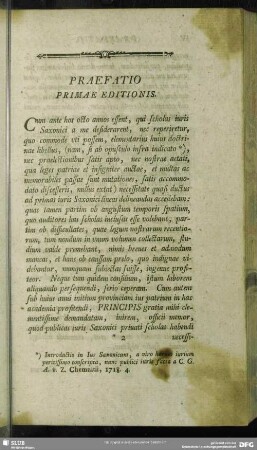 PRAEFATIO
PRIMAE EDITIONIS.
Cum ante hos octo annos essent, qui scholas iuris
Saxonici a me desiderarent, nec reperiretur,
quo commode uti possem, elementarius huius doctri-
nae libellus, (nam, si ab opusculo infra indicato *),
nec praelectionibus satis apto, nec nostrae aetati,
qua leges patriae et insigniter auctae, et multas ac
memorabiles passae sunt mutationes, satis accommo-
dato discesseris, nullus extat) necessitate quasi ductus
ad primas iuris Saxonici lineas delineandas accedebam:
quas tamen partim ob angustum temporis spatium,
quo auditores has scholas inclusas esse volebant, par-
tim ob difficultates, quae legum nostrarum recentio-
rum, tum nondum in unum volumen collectarum, stu-
dium mihi praebebant, nimis breues et adumbra
manum, et hanc ob caussam prelo, quo indignae vi-
debantur, numquam subiectas fuisse, ingenue profi-
teor. Neque tum quidem consilium, istum laborem
aliquando persequendi, serio ceperam. Cum autem
sub huius anni initium prouinciam ius patrium in hac
academia profitendi, PRINCIPIS gratia mihi cle-
mentissime demandatam, inirem, officii memor,
quod publicas iuris Saxonici priuati scholas habendi
* 2 necessi-
*) Introductio in Ius Saxonicum, a viro harum rerum
peritissimo conscripta, nunc publici iuris facta a C. G.
A. v. Z. Chemnitii, 1718. 4.
SLUB